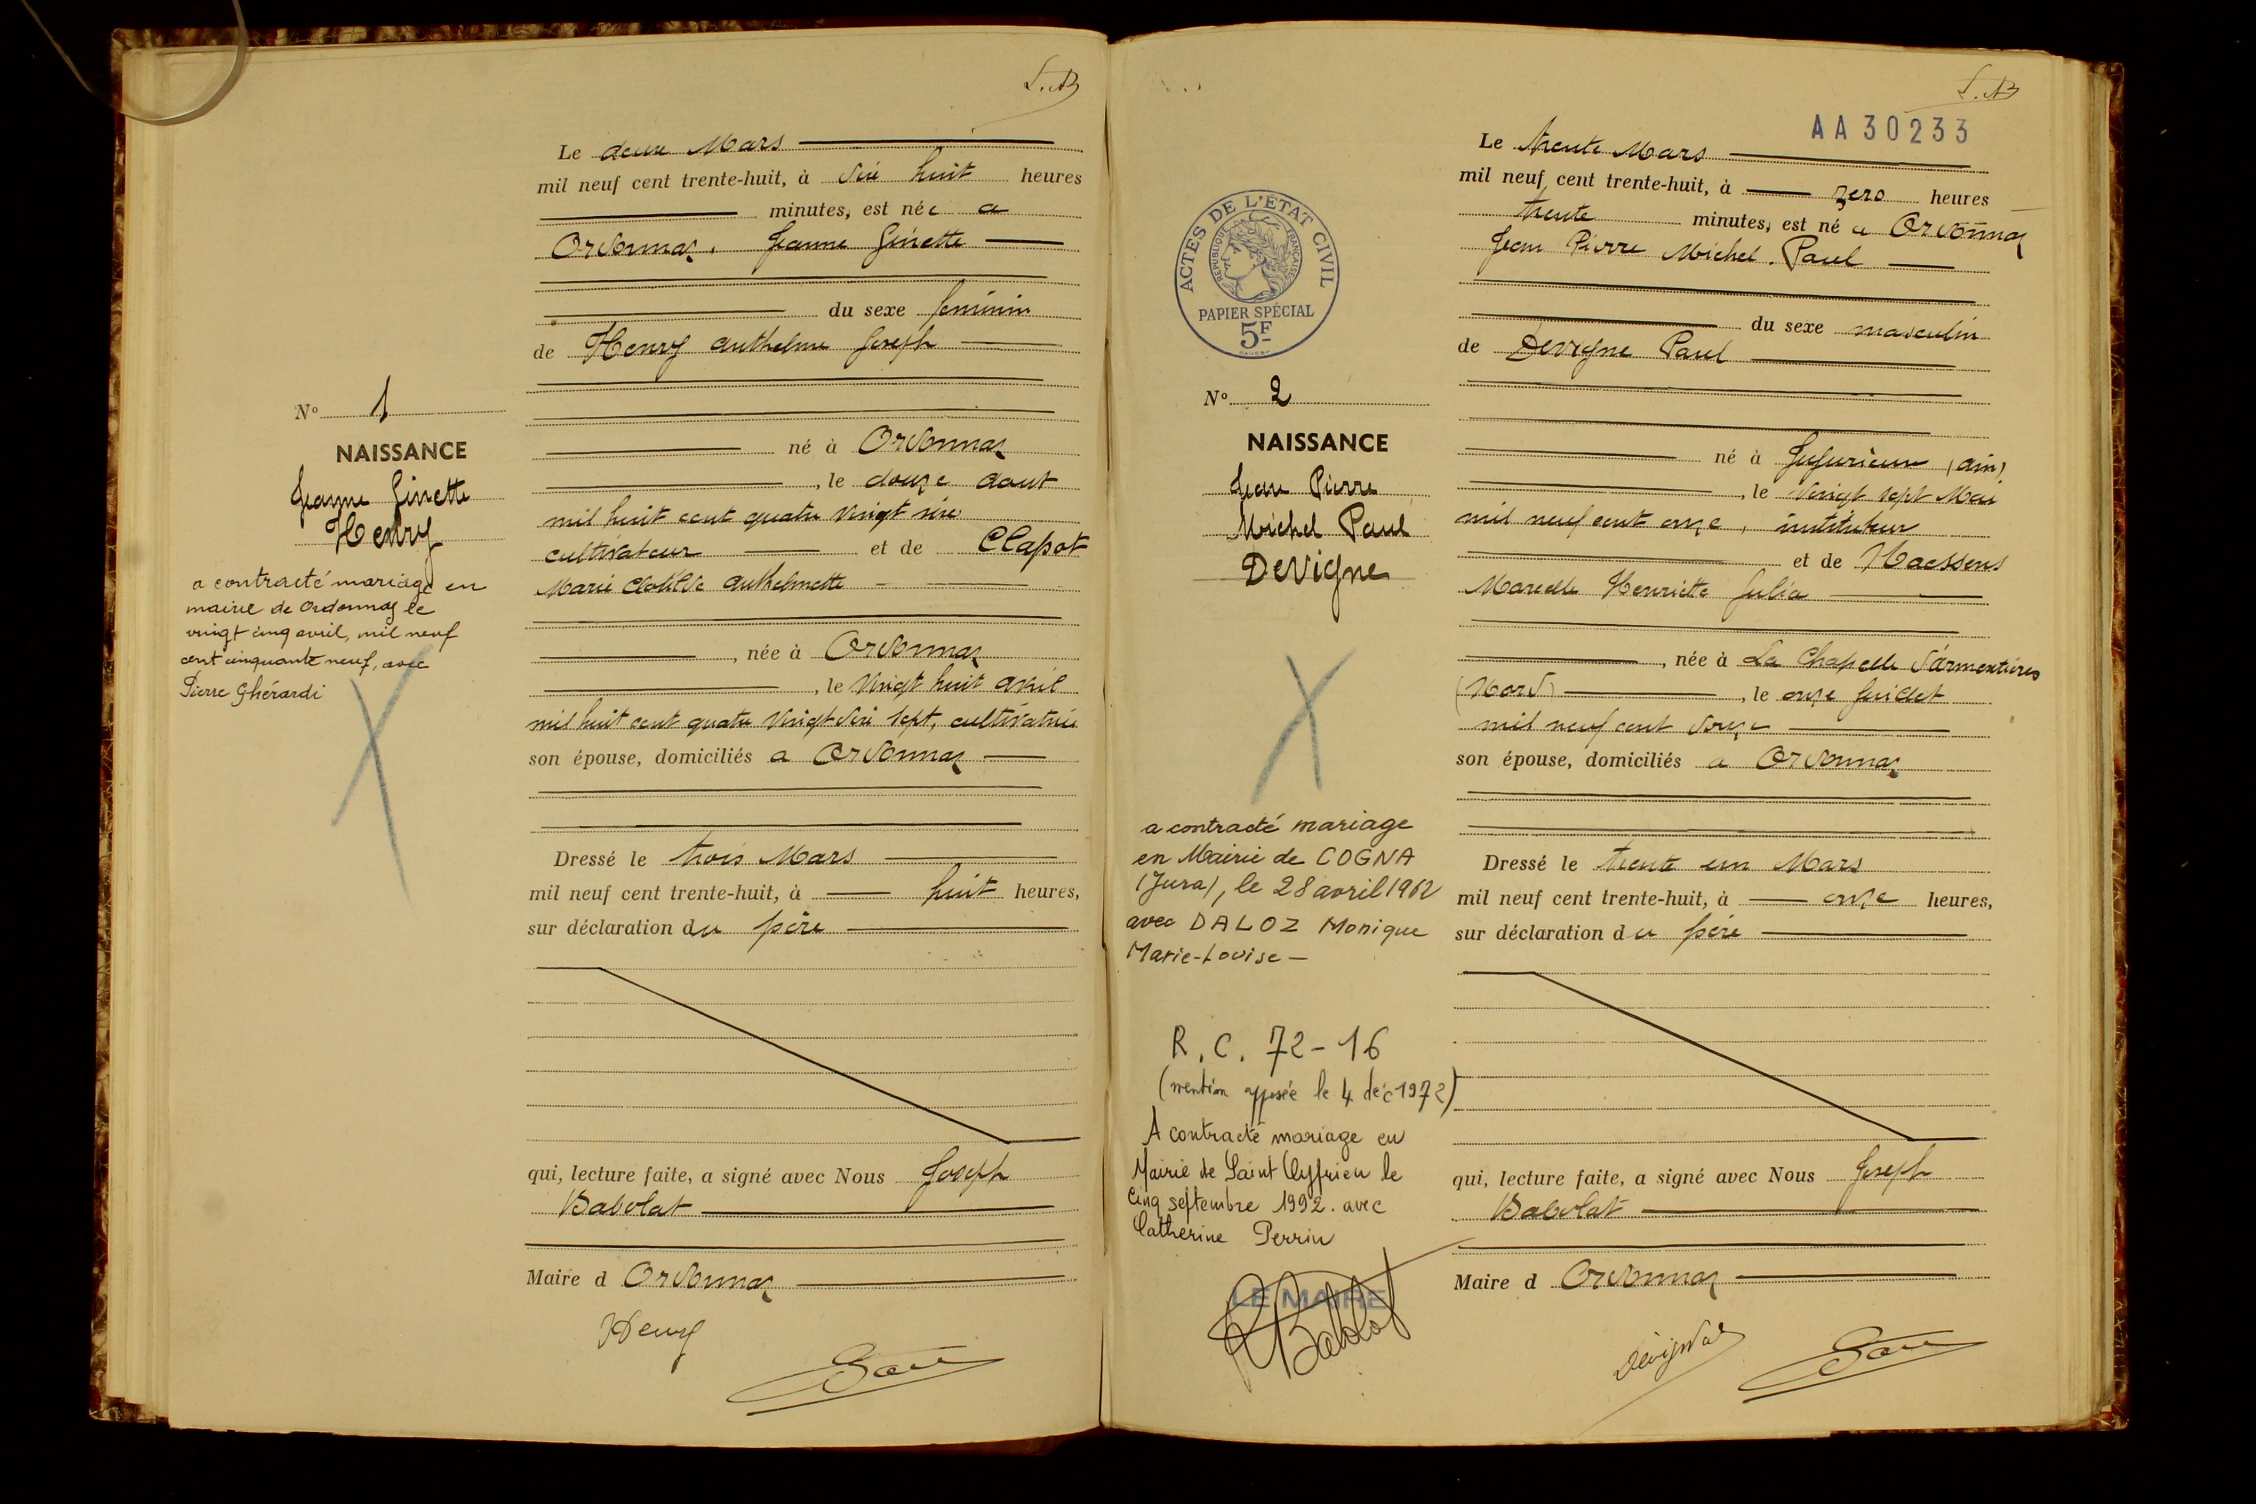 L.B
Le deux Mars
mil neuf cent trente-huit, à dix huit heures
minutes, est née a
Ordonnaz, Jeanne Ginette
du sexe féminin
de Henry Anthelme Joseph
né à Ordonnaz
, le douze aout
mil huit cent quatre vingt
cultivateur et de Clapot
Marie Clotilde Anthelmette
, née à Ordonnaz
, le vingt huit avril
mil huit cent quatre vingt dix sept, cultivatrice
son épouse, domiciliés a Ordonnaz
Dressé le trois Mars
mil neuf cent trente-huit, à huit heures,
sur déclaration du père
qui, lecture faite, a signé avec Nous Joseph
Babolat
Maire d Ordonnaz
Henry
No 1
NAISSANCE
Jeanne Ginette
Henry
a contracté mariage en
mairie de Ordonnaz le
vingt cinq avril, mil neuf
cent cinquante neuf, avec
Pierre Ghérardi
L.B
AA 30233
Le trente Mars
mil neuf cent trente-huit, à zero heures
trente minutes, est né a Ordonnaz
Jean Pierre Michel Paul
du sexe masculin
de Devigne Paul
né à Jujurieux (Ain)
, le vingt sept Mai
mil neuf cent onze, instituteur
et de Haessens
Marcelle Henriette Julia
, née à La Chapelle d'armentières
(Nord) , le onze Juillet
mil neuf cent douze
son épouse, domiciliés a Ordonnaz
Dressé le trente un Mars
mil neuf cent trente-huit, à onze heures,
sur déclaration du père
qui, lecture faite, a signé avec Nous Joseph
Babolat
Maire d Ordonnaz
ACTES DE L'ETAT CIVIL
REPUBLIQUE FRANÇAISE
PAPIER SPÉCIAL
5F
No 2
NAISSANCE
Jean Pierre
Michel Paul
Devigne
a contracté mariage
en Mairie de COGNA
(Jura), le 28 avril 1962
avec DALOZ Monique
Marie-Louise –
R.C. 72-16
(mention apposée le 4 déc 1972)
A contracté mariage en
Mairie de Saint Cyprien le
Cinq septembre 1992. avec
Catherine Perrin
LE MAIRE
Babolat